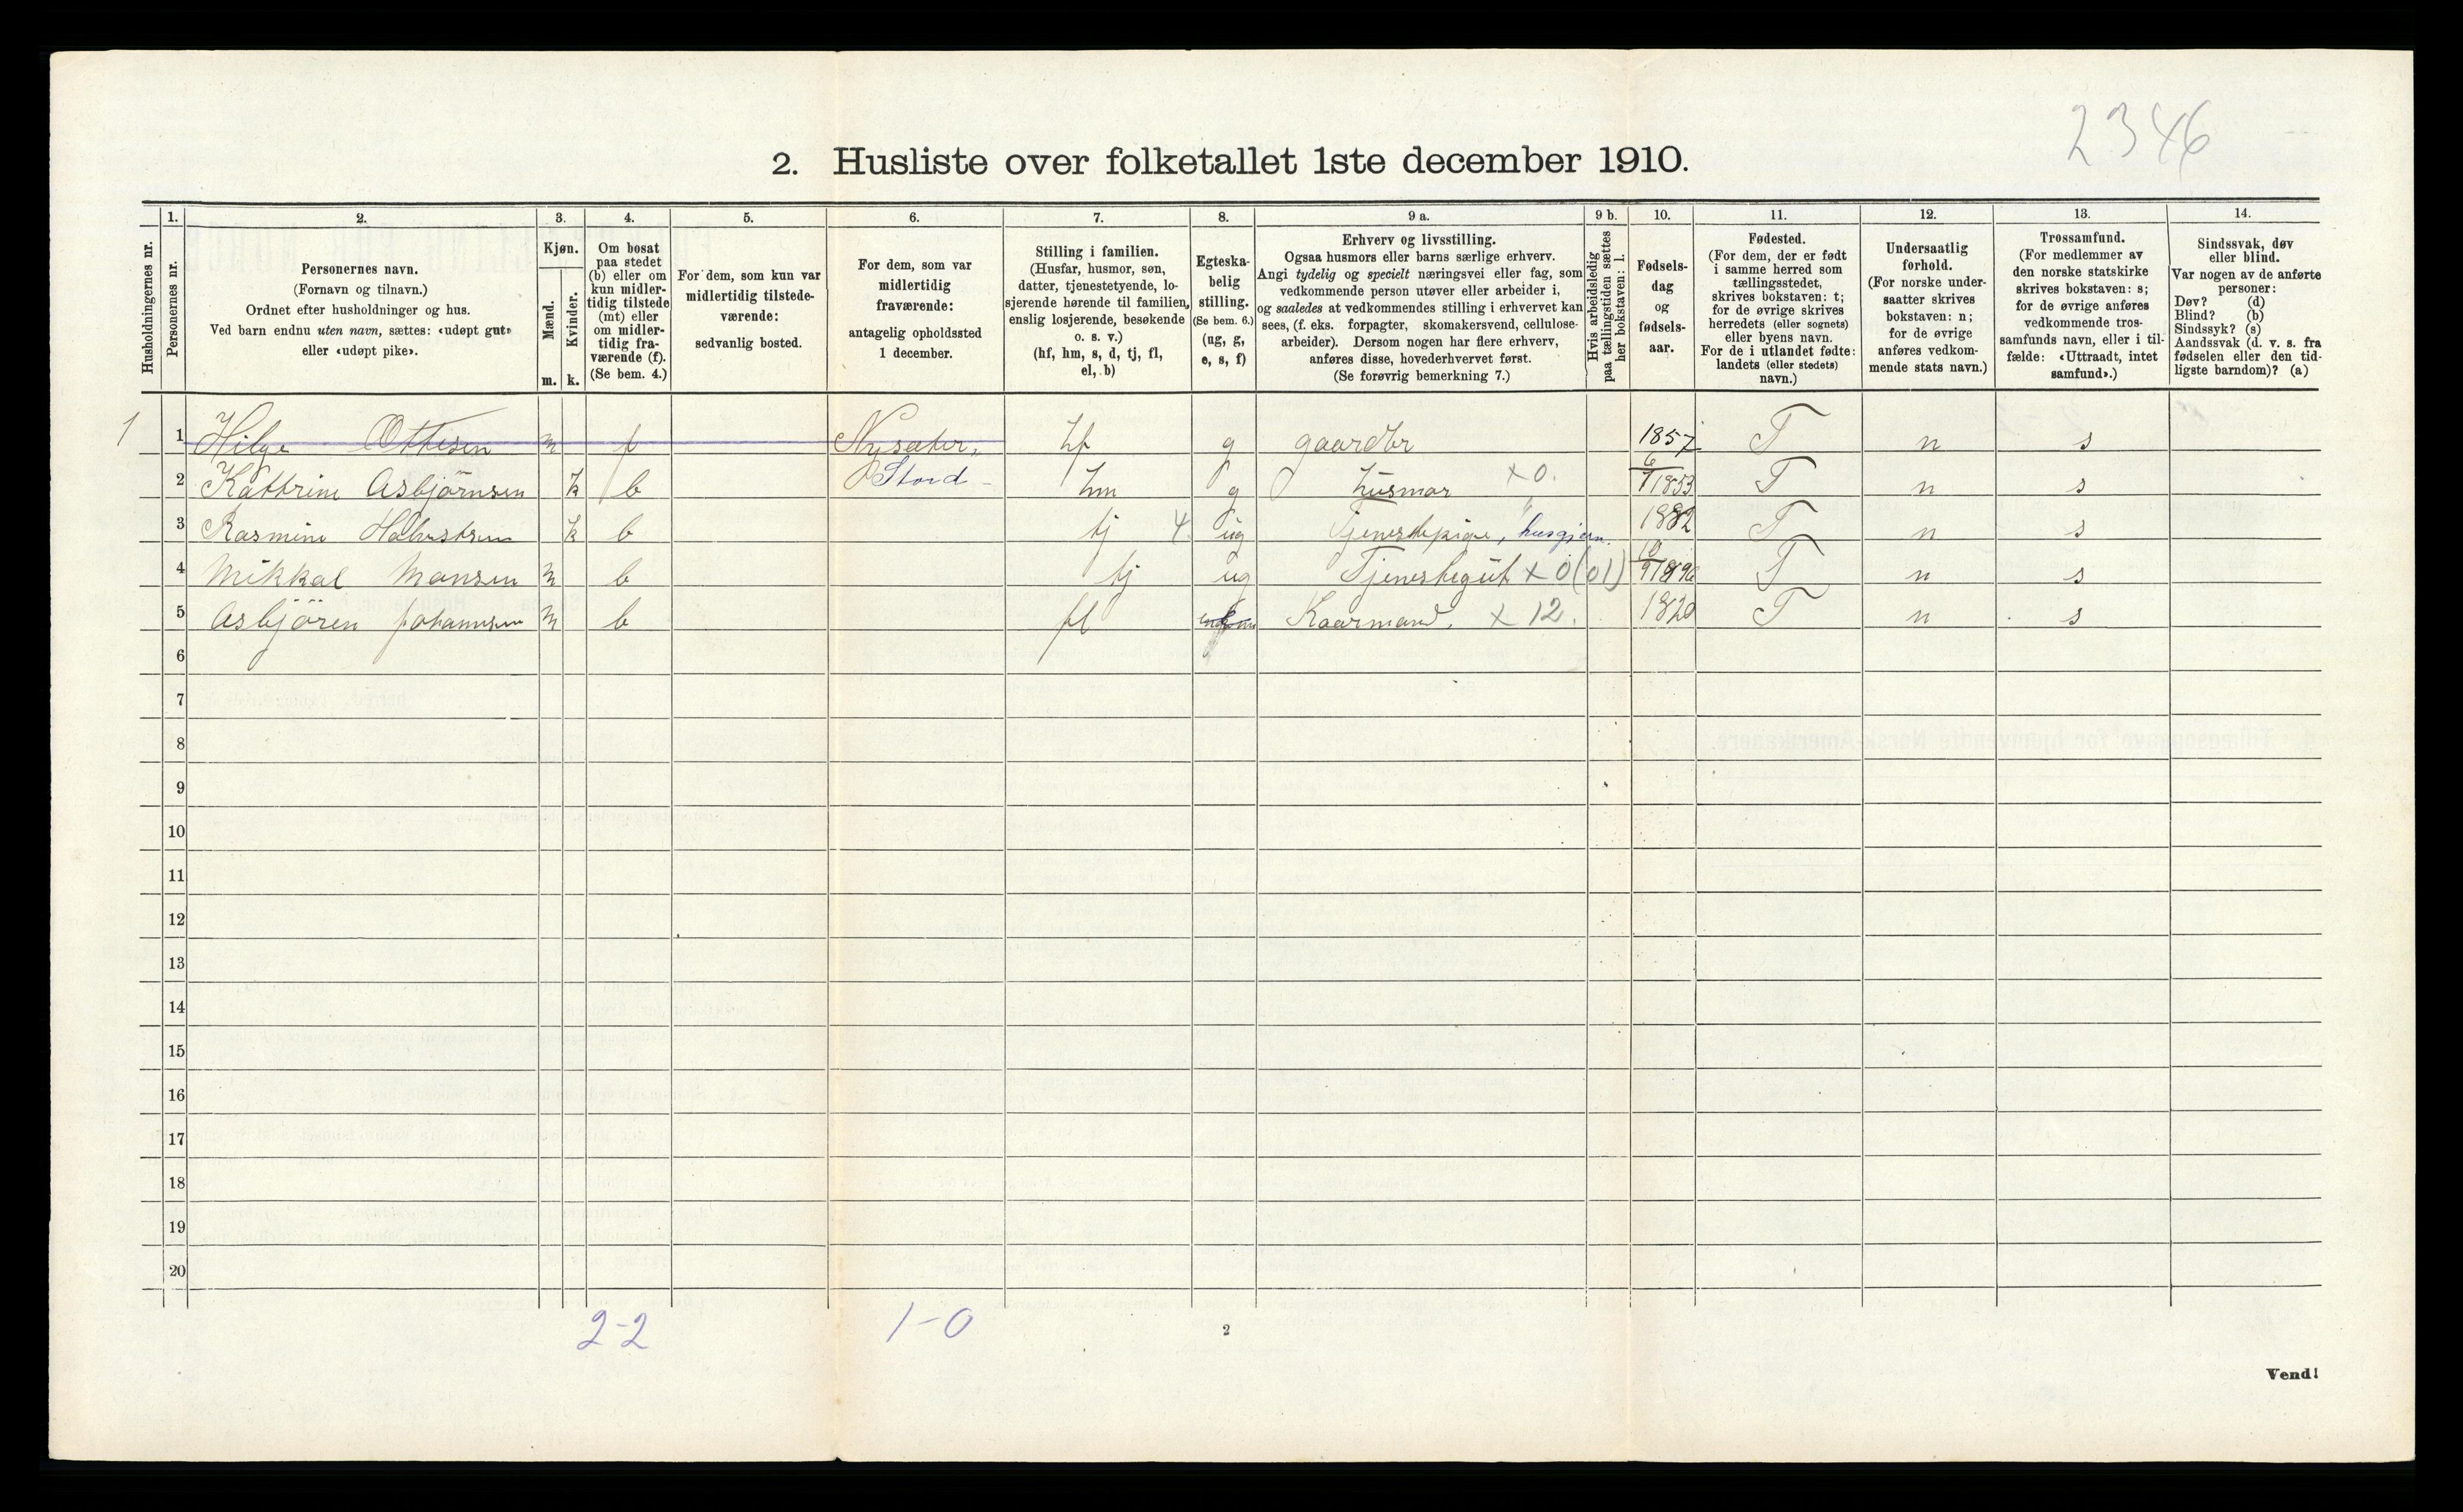 2346
2. Husliste over folketallet 1ste december 1910.
Husholdningernes nr.
1.
Personernes nr.
2.
Personernes navn.
(Fornavn og tilnavn.)
Ordnet efter husholdninger og hus.
Ved barn endnu uten navn, sættes: «udøpt gut»
eller «udøpt pike».
3.
Kjøn.
Mænd.
Kvinder.
m. k.
4.
Om bosat
paa stedet
(b) eller om
kun midler-
tidig tilstede
(mt) eller
om midler-
tidig fra-
værende (f).
(Se bem. 4.)
5.
For dem, som kun var
midlertidig tilstede-
værende:
sedvanlig bosted.
6.
For dem, som var
midlertidig
fraværende:
antagelig opholdssted
1 december.
7.
Stilling i familien.
(Husfar, husmor, søn,
datter, tjenestetyende, lo-
sjerende hørende til familien,
enslig losjerende, besøkende
o. s. v.)
(hf, hm, s, d, tj, fl,
el, b)
8.
Egteska-
belig
stilling.
(Se bem. 6.)
(ug, g,
e, s, f)
9 a.
Erhverv og livsstilling.
Ogsaa husmors eller barns særlige erhverv.
Angi tydelig og specielt næringsvei eller fag, som
vedkommende person utøver eller arbeider i,
og saaledes at vedkommendes stilling i erhvervet kan
sees, (f. eks. forpagter, skomakersvend, cellulose-
arbeider). Dersom nogen har flere erhverv,
anføres disse, hovederhvervet først.
(Se forøvrig bemerkning 7.)
9 b.
Hvis arbeidsledig
paa tællingstiden sættes
her bokstaven: l.
10.
Fødsels-
dag
og
fødsels-
aar.
11.
Fødested.
(For dem, der er født
i samme herred som
tællingsstedet,
skrives bokstaven: t;
for de øvrige skrives
herredets (eller sognets)
eller byens navn.
For de i utlandet fødte:
landets (eller stedets)
navn.)
12.
Undersaatlig
forhold.
(For norske under-
saatter skrives
bokstaven: n;
for de øvrige
anføres vedkom-
mende stats navn.)
13.
Trossamfund.
(For medlemmer av
den norske statskirke
skrives bokstaven: s;
for de øvrige anføres
vedkommende tros-
samfunds navn, eller i til-
fælde: «Uttraadt, intet
samfund».)
14.
Sindssvak, døv
eller blind.
Var nogen av de anførte
personer:
Døv? (d)
Blind? (b)
Sindssyk? (s)
Aandssvak (d. v. s. fra
fødselen eller den tid-
ligste barndom)? (a)
1 1 Hilge Ottesen m f Nysæter, hf g gaardbr 1857 T n s
2 Kattrine Asbjørnsen k b Stord hm g husmor x 0. 6/7 1853 T n s
3 Rasmine k b tj 4 ug Tjenestepige, husgjern. 1882 T n s
4 Mikkal Monsen m b tj ug Tjenestegut x 0 (01) 10/9 1896 T n s
5 Asbjören Johannesen m b fl Kaarmand. x 12. 1820 T n s
6
7
8
9
10
11
12
13
14
15
16
17
18
19
20
2-2 1-0
2
Vend!